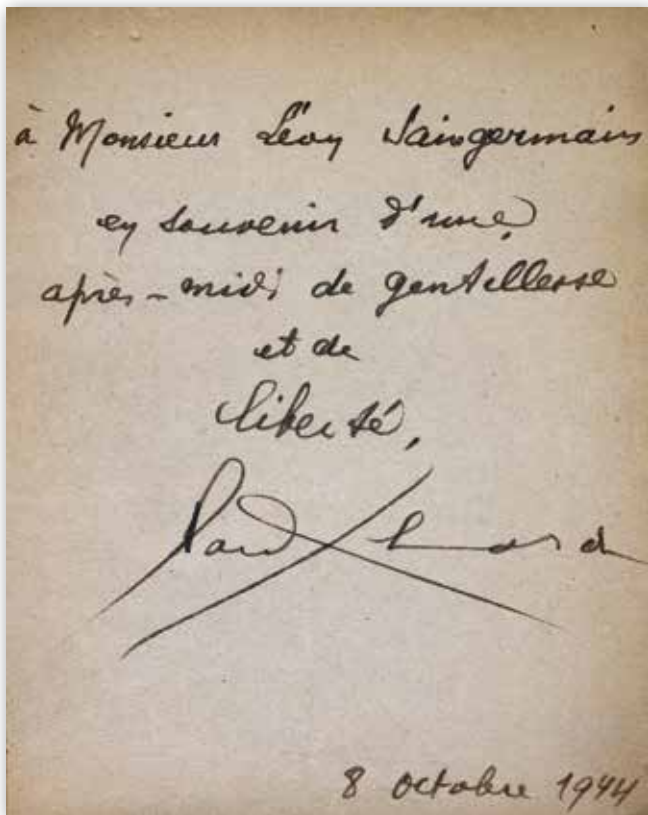 à Monsieur Léon Saingermain
en souvenir d'une
après-midi de gentillesse
et de
liberté,
Paul Eluard
8 octobre 1944